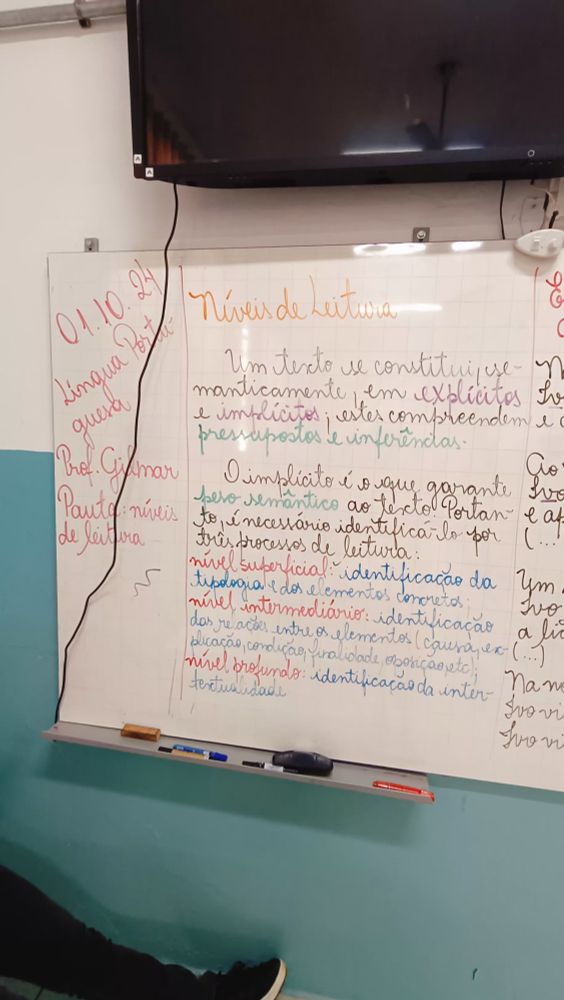 01.10.24
Língua Portu-
guesa
Prof. Gilmar
Pauta: níveis
de leitura
Níveis de Leitura
Um texto se constitui, se-
manticamente, em explícitos
e implícitos; estes compreendem
pressupostos e inferências.
O implícito é o que garante
peso semântico ao texto. Portan-
to, é necessário identificá-lo por
três processos de leitura:
nível superficial: identificação da
tipologia e dos elementos concretos;
nível intermediário: identificação
das relações entre os elementos (causa, ex-
plicação, condição, finalidade, oposição, etc);
nível profundo: identificação da inter-
textualidade
E
Ivo
e o
Ao
Ivo
e ap
(...
Ym
Ivo
a li
(...)
Na no
Ivo vi
Ivo vi